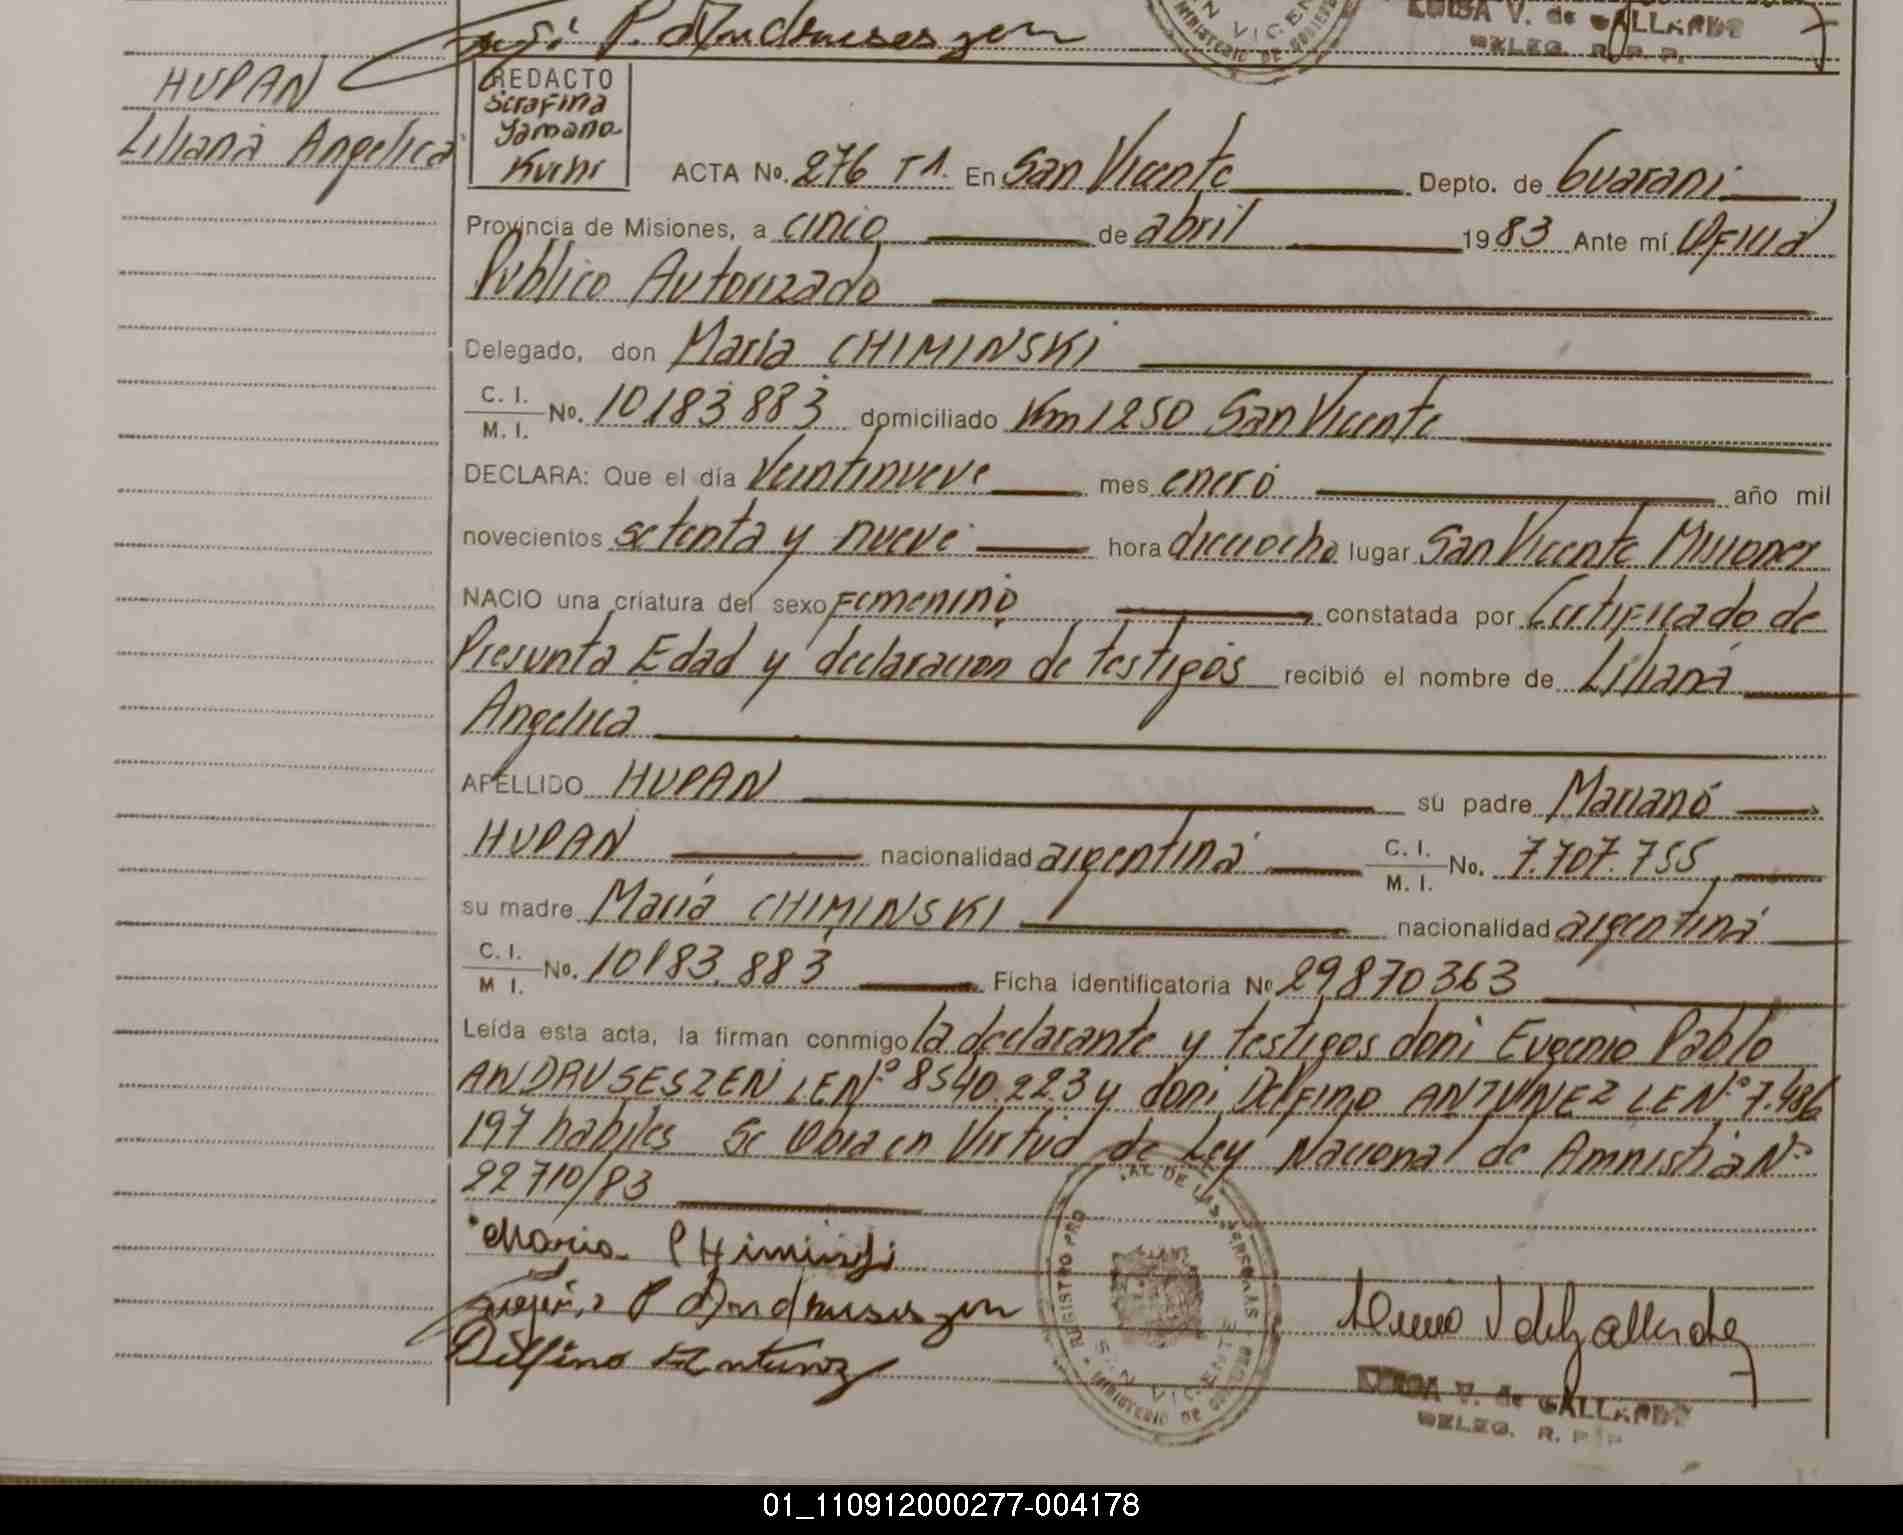 P. Andruseszen
SAN VICENTE
MINISTERIO DE GOBIERNO
LUISA V. de GALLARDO
DELEG. R. P. P.
HUPAN
Liliana Angelica
REDACTO
Serafina
Yamano
Kuchr
ACTA No. 276 T1. En San Vicente Depto. de Guarani
Provincia de Misiones, a cinco de abril 1983 Ante mí Oficial
Publico Autorizado
Delegado, don Maria CHIMINSKI
C. I.
M. I. No. 10.183.883 domiciliado Km 1250 San Vicente
DECLARA: Que el día Veintinueve mes enero año mil
novecientos setenta y nueve hora dieciocho lugar San Vicente Misiones
NACIO una criatura del sexo Femenino constatada por Certificado de
Presunta Edad y declaracion de testigos recibió el nombre de Liliana
Angelica
APELLIDO HUPAN su padre Mariano
HUPAN nacionalidad argentina C. I.
M. I. No. 7.707.755
su madre Maria CHIMINSKI nacionalidad argentina
C. I.
M I. No. 10183.883 Ficha identificatoria No 29870363
Leída esta acta, la firman conmigo la declarante y testigos don: Eugenio Pablo
ANDRUSESZEN LE Nº 8540.223 y don: Delfino ANTUNEZ LE Nº 7.486
197 habiles Se Obra en Virtud de Ley Nacional de Amnistia Nº
22710/83
Maria CHiminski
P Andruseszen
Delfino Antunez
REGISTRO PRO AL DE LAS PERSONAS
SAN VICENTE
MINISTERIO DE GOBIERNO
LUISA V. de GALLARDO
DELEG. R. P. P.
01_110912000277-004178